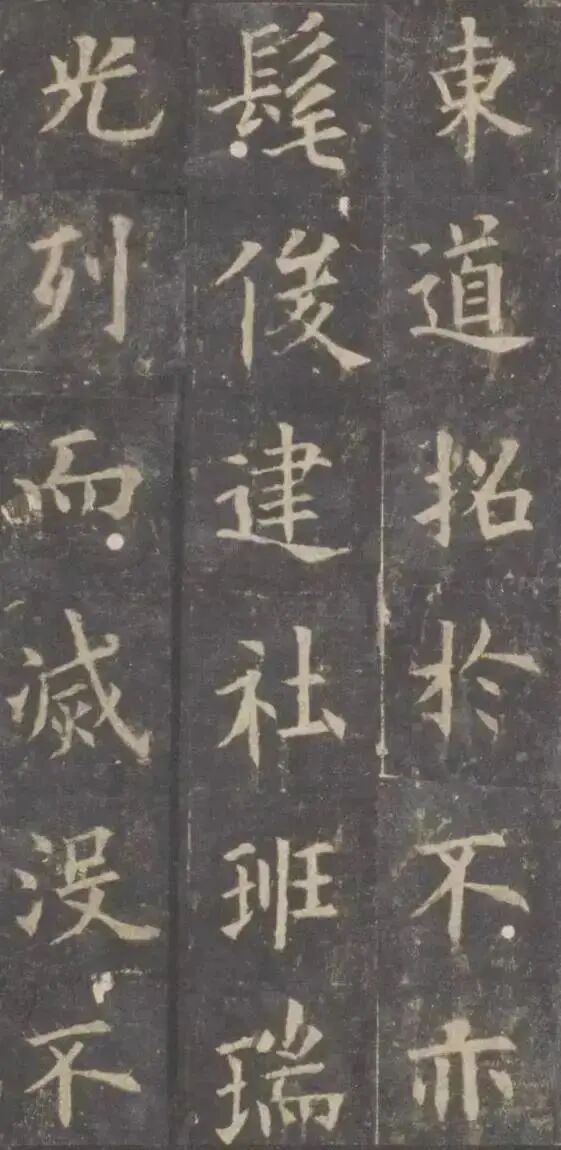 東道招於不亦
髦俊建社班瑞
光列而滅没不